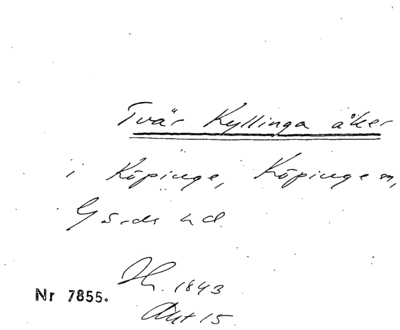 Tvär Kyllinga åker
i Köpinge, Köpinge sn,
Gärds hd.
Sk. 1843
Akt 15
Nr 7855.